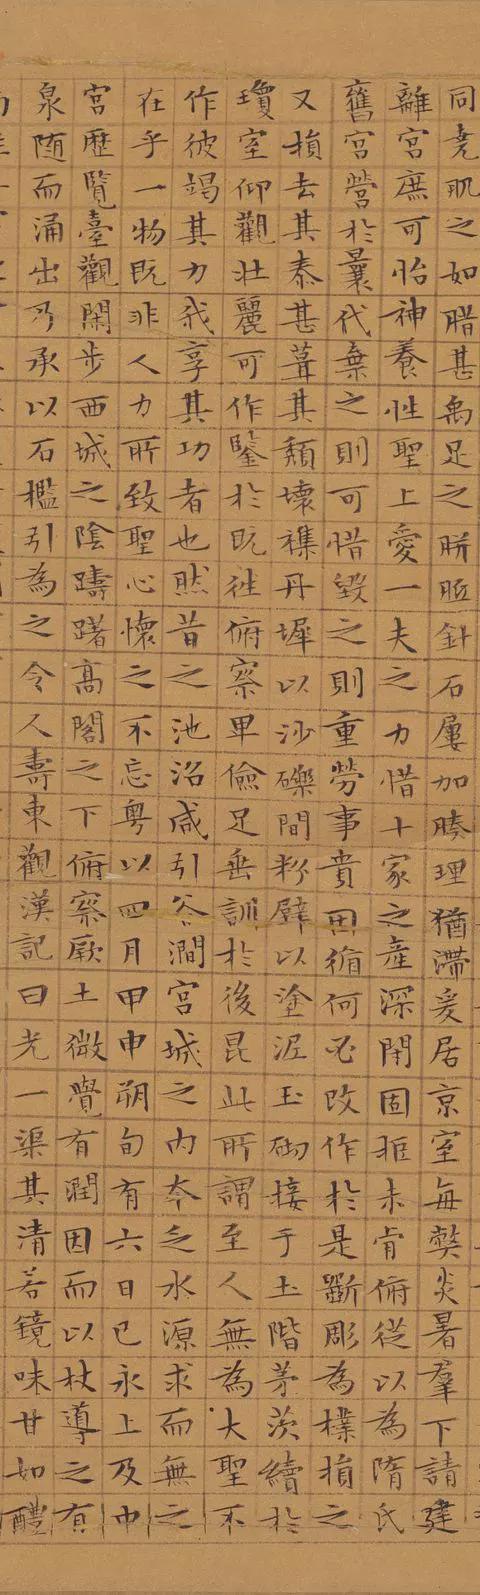 同堯肌之如腊甚禹足之胼胝針石屢加腠理猶滯爰居京室每弊炎暑羣下請建
離宮庶可怡神養性聖上愛一夫之力惜十家之產深閉固拒未肯俯從以為隋氏
舊宮營於曩代棄之則可惜毀之則重勞事貴因循何必改作於是斷彫為樸損之
又損去其泰甚葺其頹壞雜丹墀以沙礫間粉壁以塗泥玉砌接于土階茅茨續於
瓊室仰觀壯麗可作鑒於既往俯察卑儉足垂訓於後昆此所謂至人無為大聖不
作彼竭其力我享其功者也然昔之池沼咸引谷澗宮城之內本乏水源求而無之
在乎一物既非人力所致聖心懷之不忘粵以四月甲申朔旬有六日已永上及中
宮歷覽臺觀閑步西城之陰躊躇高閣之下俯察厥土微覺有潤因而以杖導之有
泉隨而涌出乃承以石檻引為之令人壽東觀漢記曰光一渠其清若鏡味甘如醴